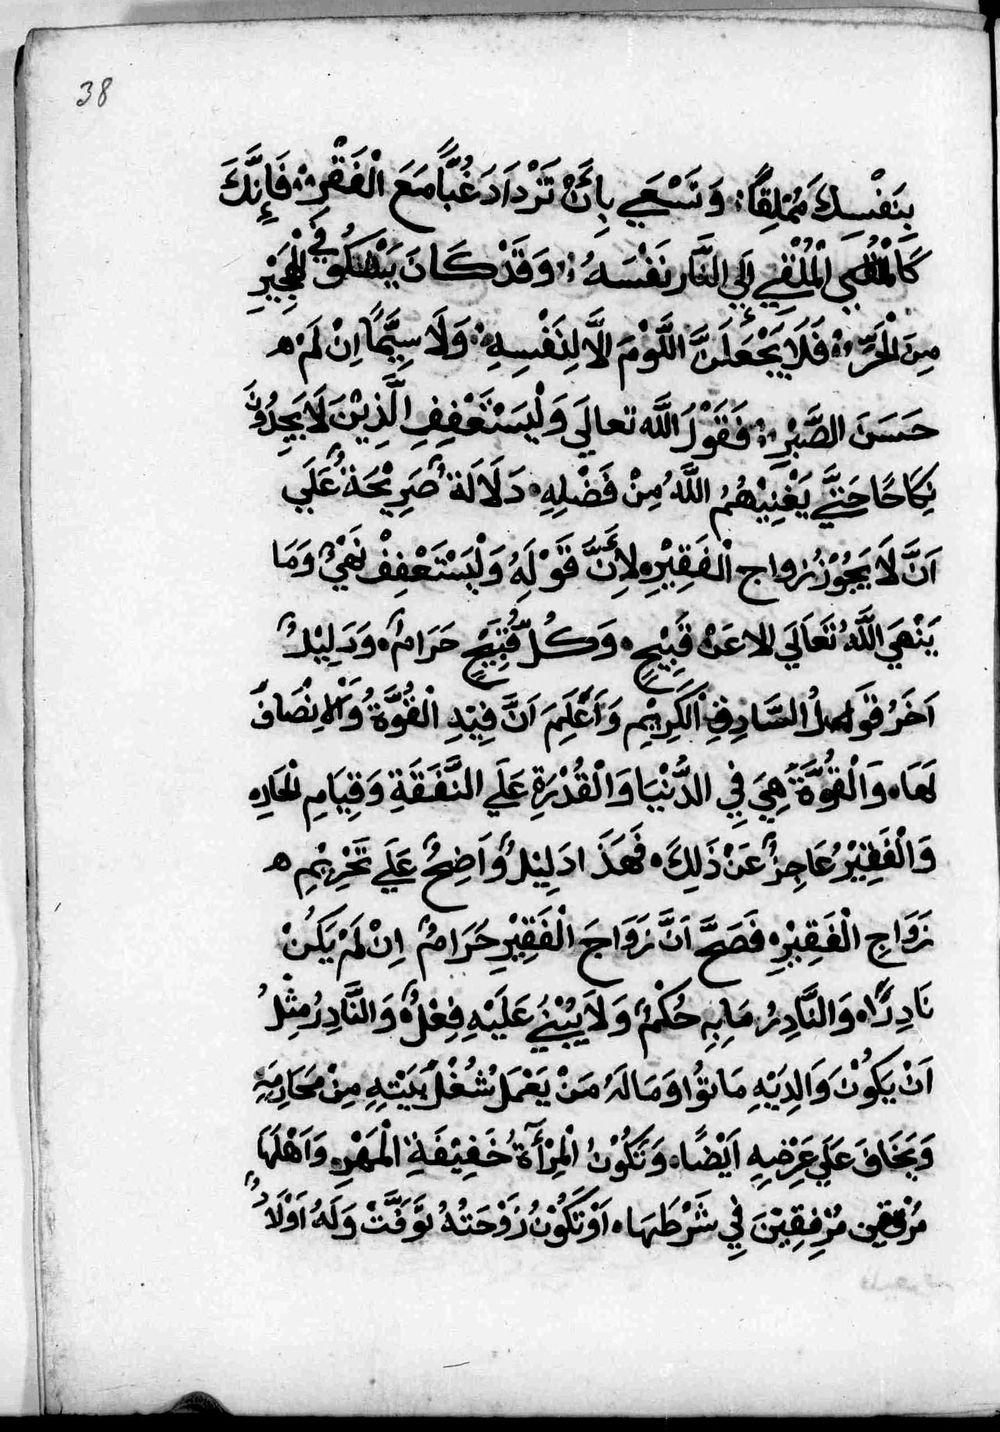 38
بِنَفْسِكَ مُمْلِقًا؛ وَتَسْعَي بِأَنْ تَزْدَادَ غُبًّا مَعَ الْفَقْرِ؛ فَإِنَّكَ
الْمُلْقِي إِلَي النَّارِ نَفْسَهُ؛ وَقَدْ كَانَ يَشْكُو فِي الْهَجِيْرِ
مِنَ الْحَرِّ؛ فَلَا يَجْعَلَنَّ اللَّوْمَ اِلَّا لِنَفْسِهِ؛ وَلَا سِيَّمَا اِنْ لَمْ ه
حَسَنَ الصَّبْرِ؛ فَقَوْلَ اللَّه تعالَي وَلْيَسْتَعْفِفِ الَّذِيْنَ لَا يَجِدُوْنَ
نِكَاحًا حَتَّي يَغْنِيْهُمُ اللَّهُ مِنْ فَضْلِهِ، دَلَالَةٌ صَرِيْحَةٌ عَلَي
اَنَّ لَا يَجُوْزُ زواج الْفَقِيْرِ، لِأَنَّ قَوْلَهُ وَلْيَسْتَعْفِفْ نَهْيٌ وَمَا
يَنْهَي اللَّهُ تَعَالَي الا عَنْ قَبِيْحٍ، وَكُلُّ قُبِيْحٍ حَرَامٌ، وَدَلِيْلٌ
اَخَرُ قَوَلُ السَّادِقِ الْكَرِيْمِ وَاَعْلِمَ اَنَّ فِيْدِ الْقُوَّةُ وَالْاِنْصَافَ
لَهَا، وَالْقُوَّةَ هِيَ فِي الدُّنْيَا وَالْقُدْرَةِ عَلَي النَّفَقَةِ وَقِيَامِ الْحَاِه
وَالْفَقِيْرُ عَاجِزٌ عَنْ ذَلِكَ، فَهَذَا دَلِيْلٌ وَاَضِحٌ عَلَي تَحْرِيْمِ ه
زَوَاجِ الْفَقِيْرِ، فَصَحَّ اَنَّ زَوَاجَ الْفَقِيْرِ حَرَامٌ اِنْ لَمْ يَكَنْ
نَادِرًا، وَالنَّادِرُ مَا بِهِ حُكْمٌ وَلَا يُبْنَيُ عَلَيْهِ فِعْلٌ، وَالنَّادِرُ مِثْلُ
اَنْ يَكُوْنَ وَالِدِيْهِ مَاتُوْا وَمَا لَهُ مَنْ يَعْمَلُ شُغْلَ بَيْتِهِ مِنْ مَحَارِمِهِ
وَيَخَافَ عَلَي عَرْضِهِ اَيْضًا، وَتَكُوْنُ الْمِرْأَةُ خَفِيْفَةِ الْمَهْرِ، وَاَهْلَهَا
مُرْفقين مُرْفِقِيْنَ فِي شَرْطَهَا، اَوْ تَكُوْنُ زَوْجَتُهُ تُوَفَّتْ وَلَهُ اَوْلَادٌ